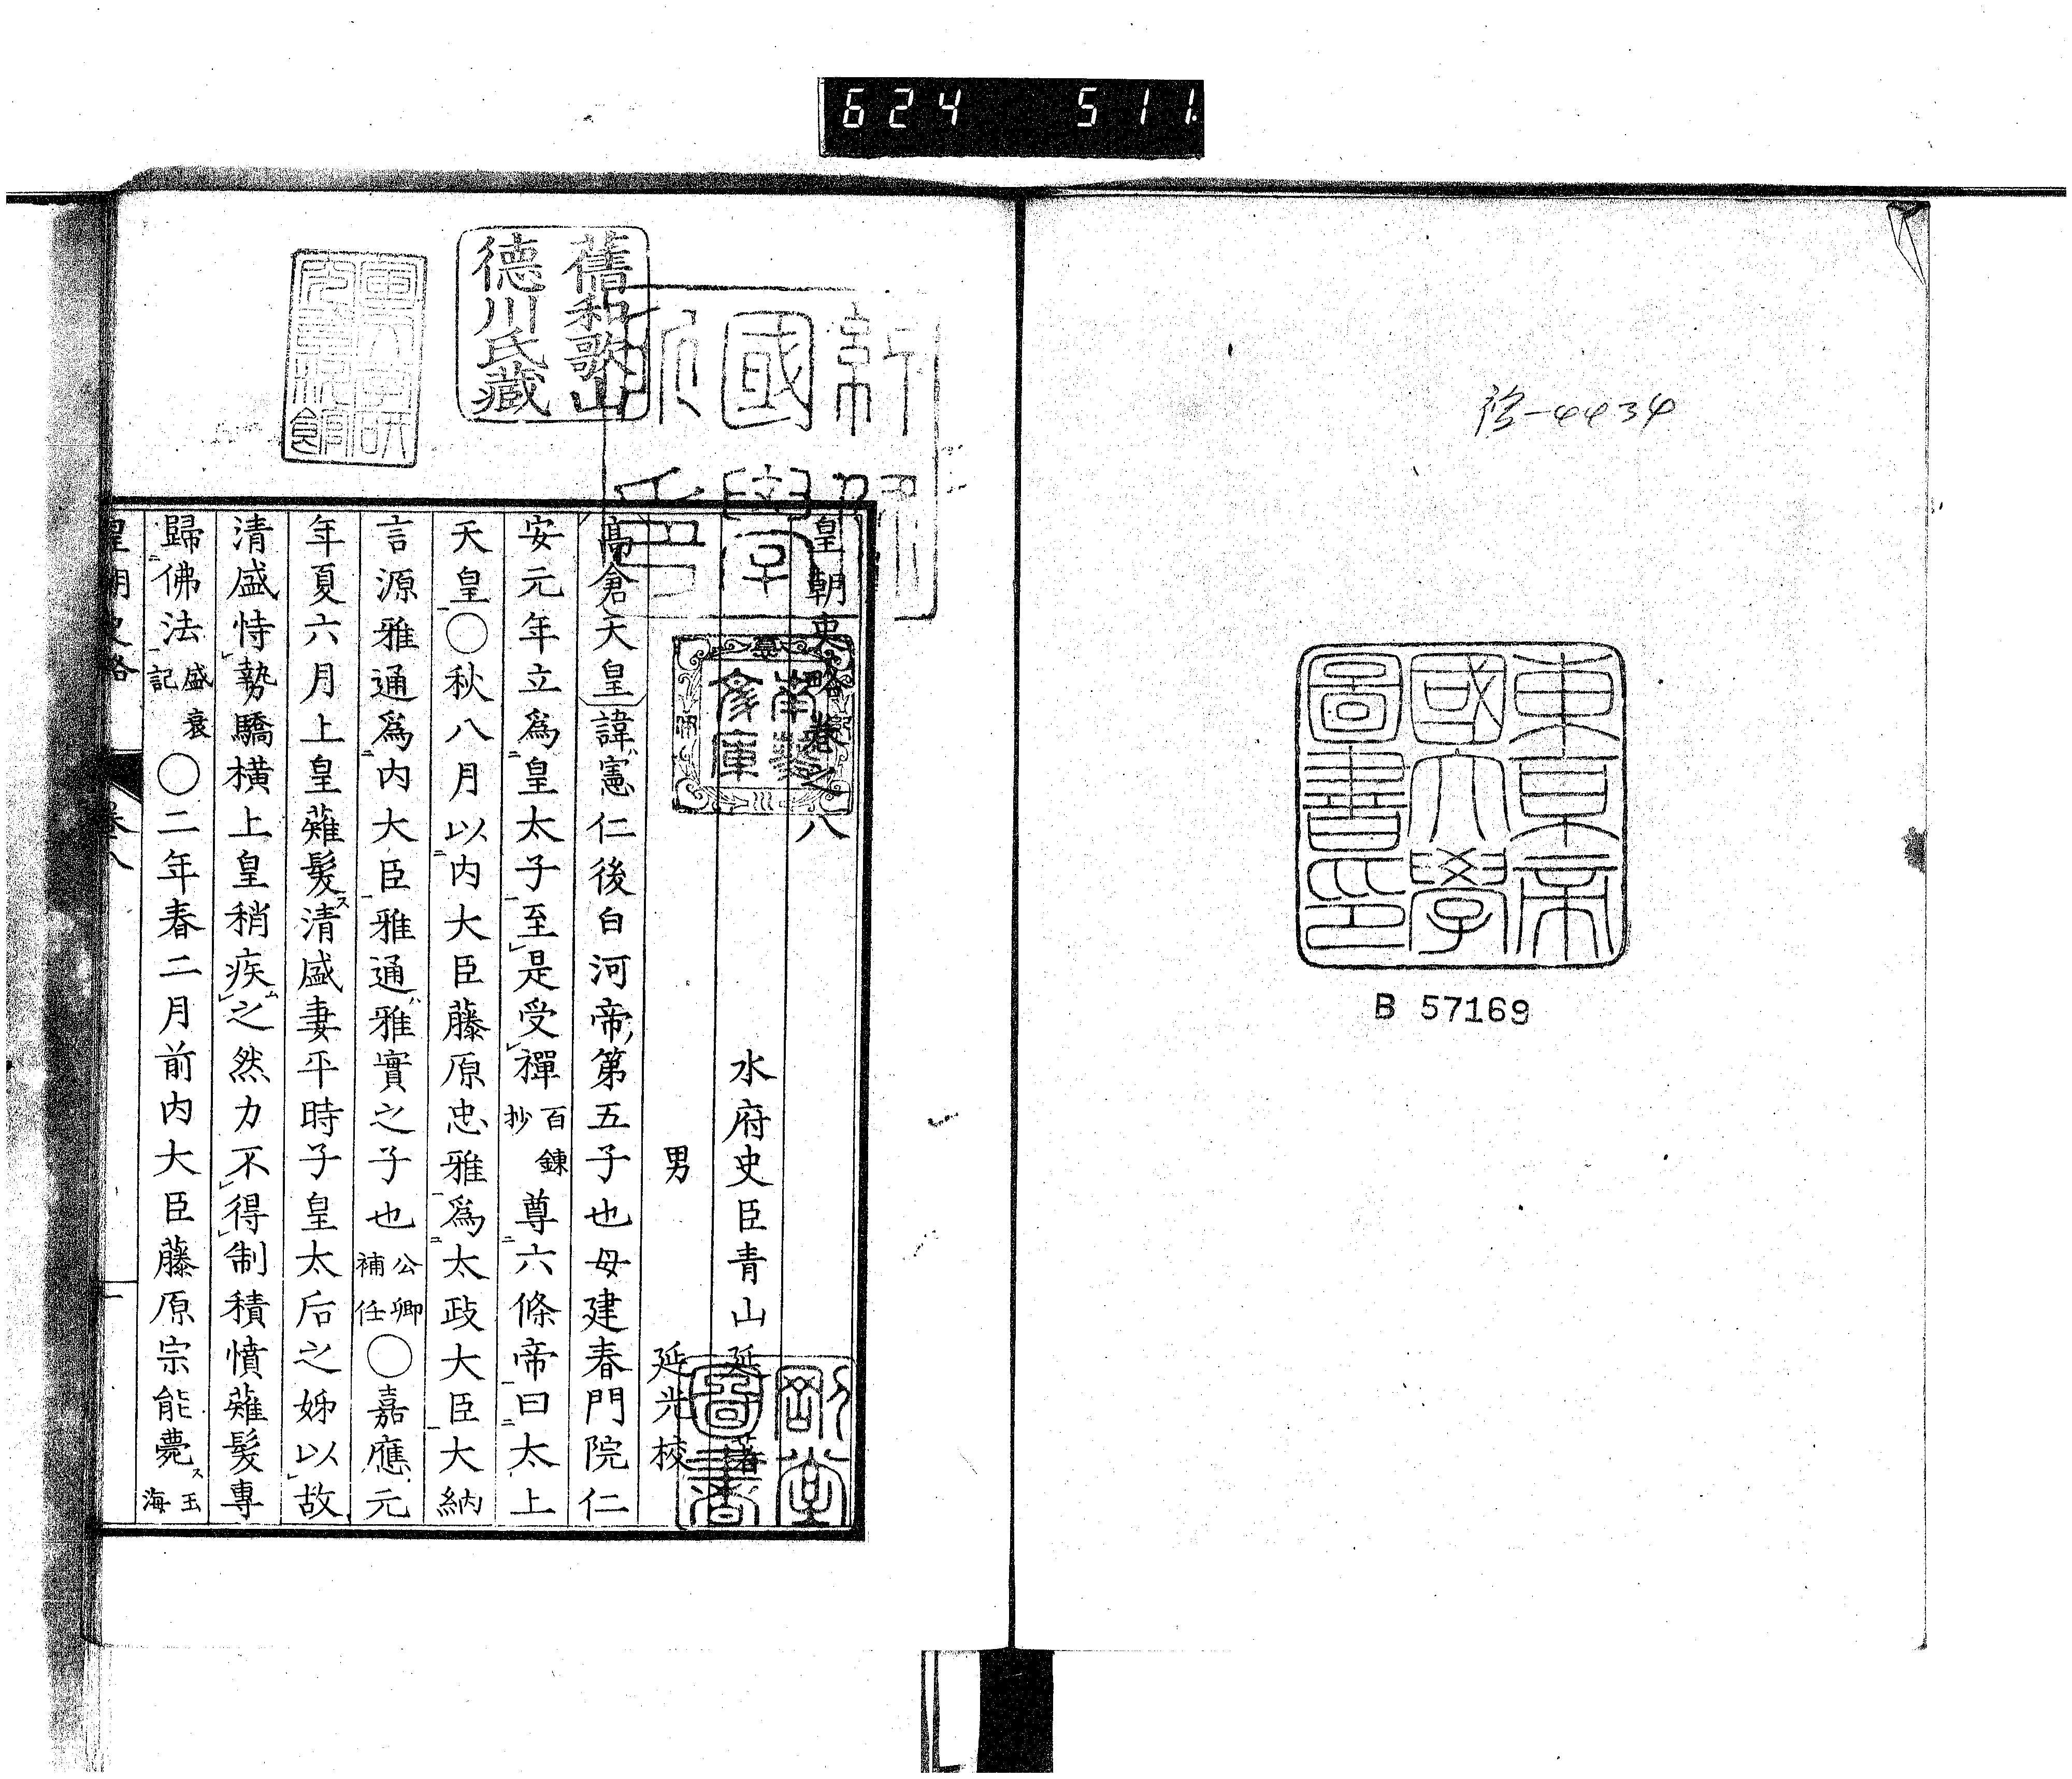 624 511
B 57169
東京帝
國大學
圖書印
舊和歌山
德川氏藏
南葵
文庫
剛堂
圖書
皇朝史略卷之八
水府史臣青山延著
男 延光校
高倉天皇諱憲仁後白河帝第五子也母建春門院仁
安元年立爲皇太子至是受禪百鍊抄尊六條帝曰太上
天皇○秋八月以内大臣藤原忠雅爲太政大臣大納
言源雅通爲内大臣雅通雅實之子也公卿補任○嘉應元
年夏六月上皇薙髮清盛妻平時子皇太后之姊以故
清盛恃勢驕橫上皇稍疾之然力不得制積憤薙髮專
歸佛法盛衰記○二年春二月前内大臣藤原宗能薨玉海
皇朝史略 卷八 一